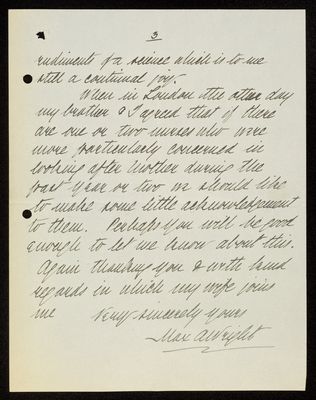 3
rudiments of a science which is to me
still a continual joy.
When in London the other day
my brother & I agreed that if there
are one or two nurses who were
more particularly concerned in
looking after Mother during the
past year or two we should like
to make some little acknowledgement
to them. Perhaps you will be good
enough to let me know about this.
Again thanking you & with kind
regards in which my wife joins
me Very sincerely yours
Max A Wright